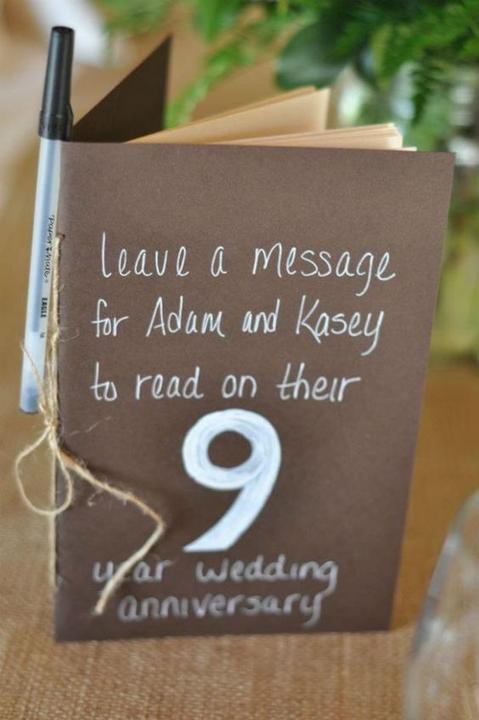 leave a message
for Adam and Kasey
to read on their
9
year wedding
anniversary
Paper Mate
EAGLE